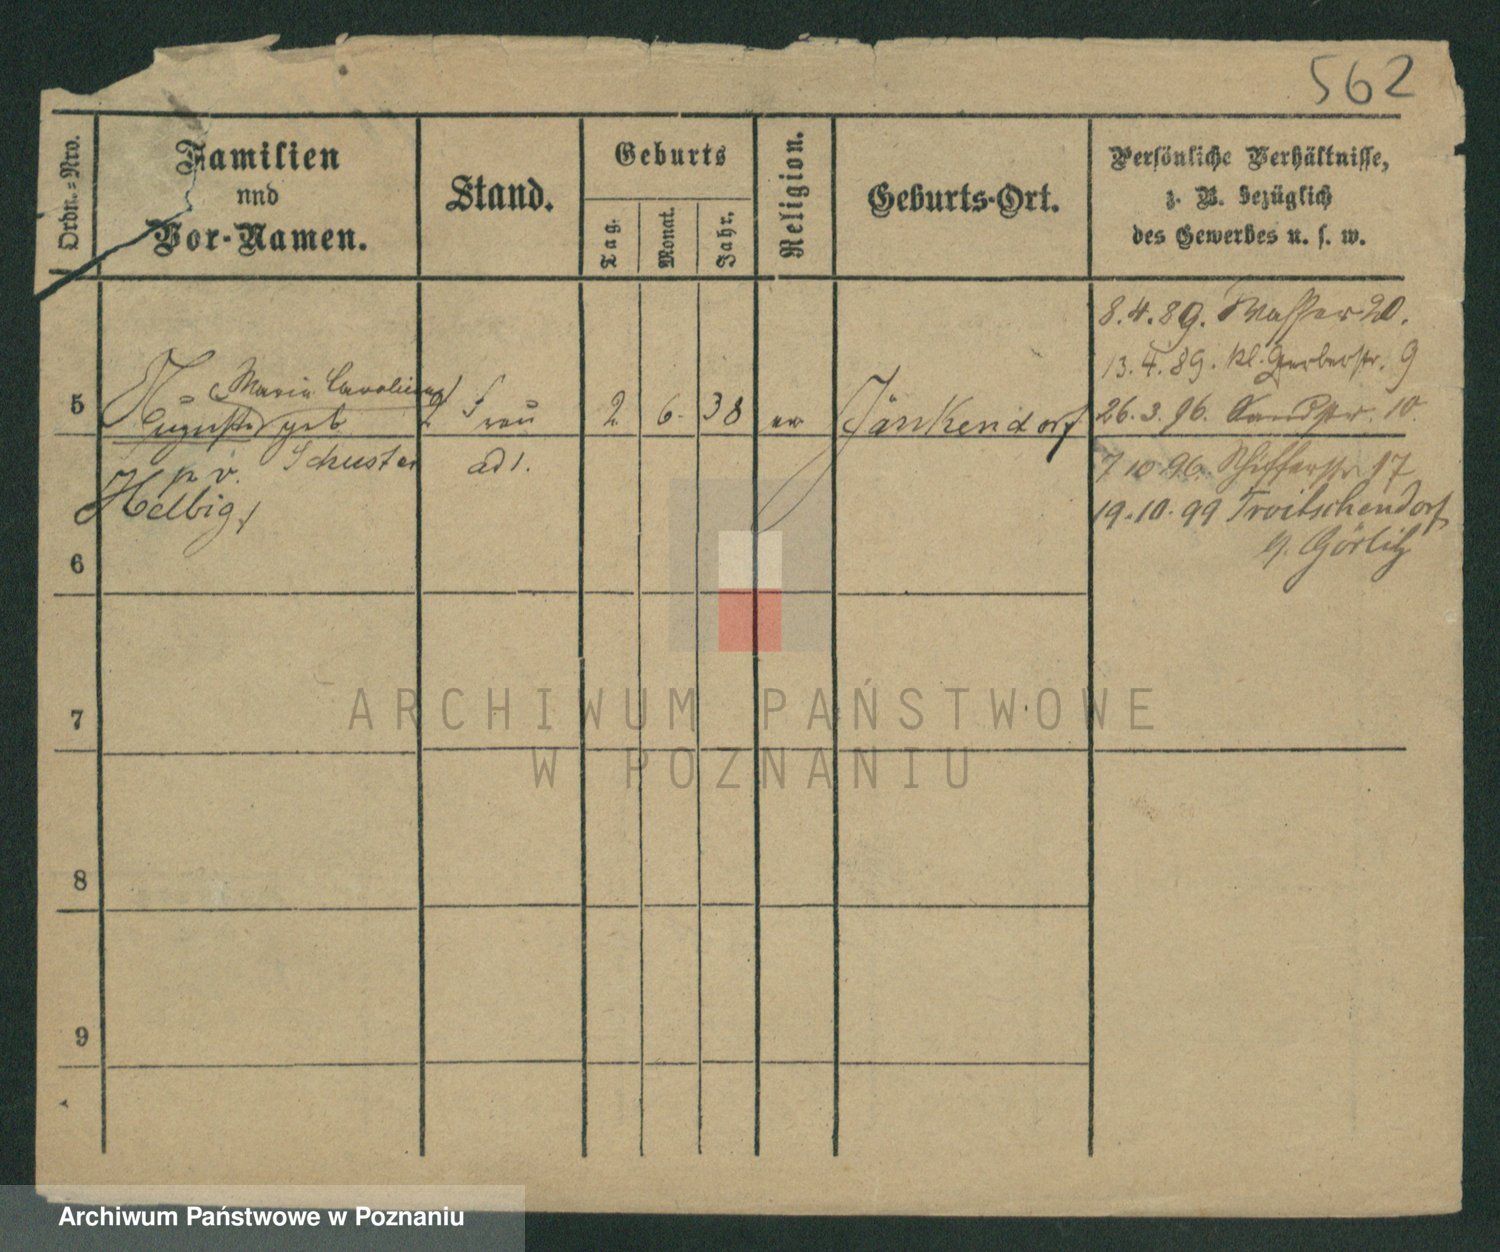 562
Ordn.-Nro.
Familien
und
Vor-Namen.
Stand.
Geburts
Tag.
Monat.
Jahr.
Religion.
Geburts-Ort.
Persönliche Verhältnisse,
z. B. bezüglich
des Gewerbes u. s. w.
8.4.89. Wasser 20.
13.4.89. Kl. Gerberstr. 9
5
(Maria Carolina)
Auguste geb
Schuster
p. v.
Helbig
Frau
ad 1.
2
6.
38
ev
Jänkendorf
26.3.96. Sandstr. 10
7 10 96. Schifferstr 17
19.10.99 Troitschendorf
b. Görlitz
6
7
8
9
ARCHIWUM PAŃSTWOWE
W POZNANIU
Archiwum Państwowe w Poznaniu